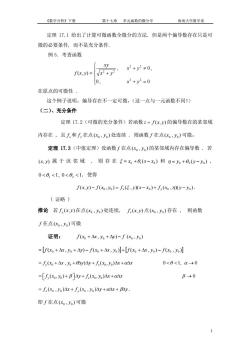 《数学分析》下册 第十七章 多元函数的微分学 海南大学数学系
定理 17.1 给出了计算可微函数全微分的方法, 但是两个偏导数存在只是可
微的必要条件, 而不是充分条件.
例 5. 考查函数
f(x,y) = { xy/√(x²+y²), x²+y² ≠ 0,
0, x²+y² = 0
在原点的可微性 .
这个例子说明, 偏导存在不一定可微.(这一点与一元函数不同!)
(二)、充分条件
定理 17.2(可微的充分条件)若函数 z = f(x,y) 的偏导数在的某邻域
内存在 , 且 fₓ 和 f_y 在点(x₀,y₀)处连续 . 则函数 f 在点(x₀,y₀)可微。
定理 17.3(中值定理)设函数 f 在点(x₀,y₀)的某邻域内存在偏导数. 若
(x,y) 属于该邻域 , 则存在 ξ = x₀ + θ₁(x − x₀) 和 η = y₀ + θ₂(y − y₀) ,
0 < θ₁ < 1, 0 < θ₂ < 1, 使得
f(x,y) − f(x₀,y₀) = fₓ(ξ,y)(x − x₀) + f_y(x₀,η)(y − y₀).
( 证略 )
推论 若 fₓ(x,y)在点(x₀,y₀)处连续, f_y(x,y)点(x₀,y₀)存在 , 则函数
f 在点(x₀,y₀)可微
证明: f(x₀+Δx, y₀+Δy) − f(x₀,y₀)
= [f(x₀+Δx, y₀+Δy) − f(x₀+Δx, y₀)] + [f(x₀+Δx, y₀) − f(x₀,y₀)]
= f_y(x₀+Δx, y₀+θΔy)Δy + fₓ(x₀,y₀)Δx + αΔx 0<θ<1, α→0
= [f_y(x₀,y₀)+β]Δy + fₓ(x₀,y₀)Δx + αΔx β→0
= fₓ(x₀,y₀)Δx + f_y(x₀,y₀)Δy + αΔx + βΔy .
即 f 在点(x₀,y₀)可微
1